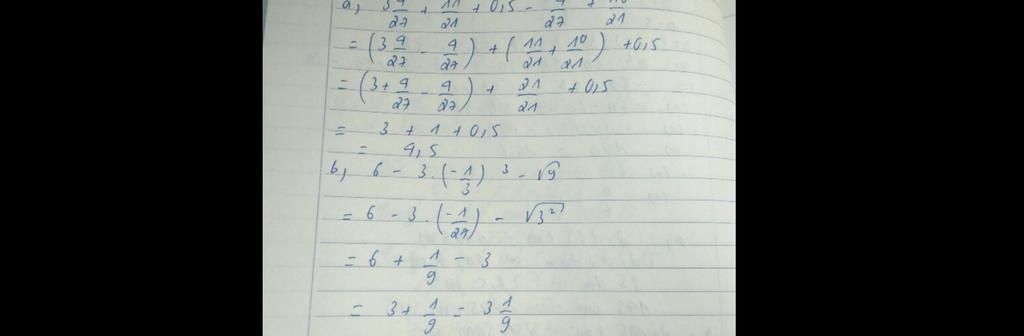 a, 3 4/27 + 11/21 + 0,5 - 4/27 + 10/21
= (3 4/27 - 4/27) + (11/21 + 10/21) + 0,5
= (3 + 4/27 - 4/27) + 21/21 + 0,5
= 3 + 1 + 0,5
= 4,5
b, 6 - 3 . (-1/3)³ - √9
= 6 - 3 . (-1/27) - √3²
= 6 + 1/9 - 3
= 3 + 1/9 = 3 1/9